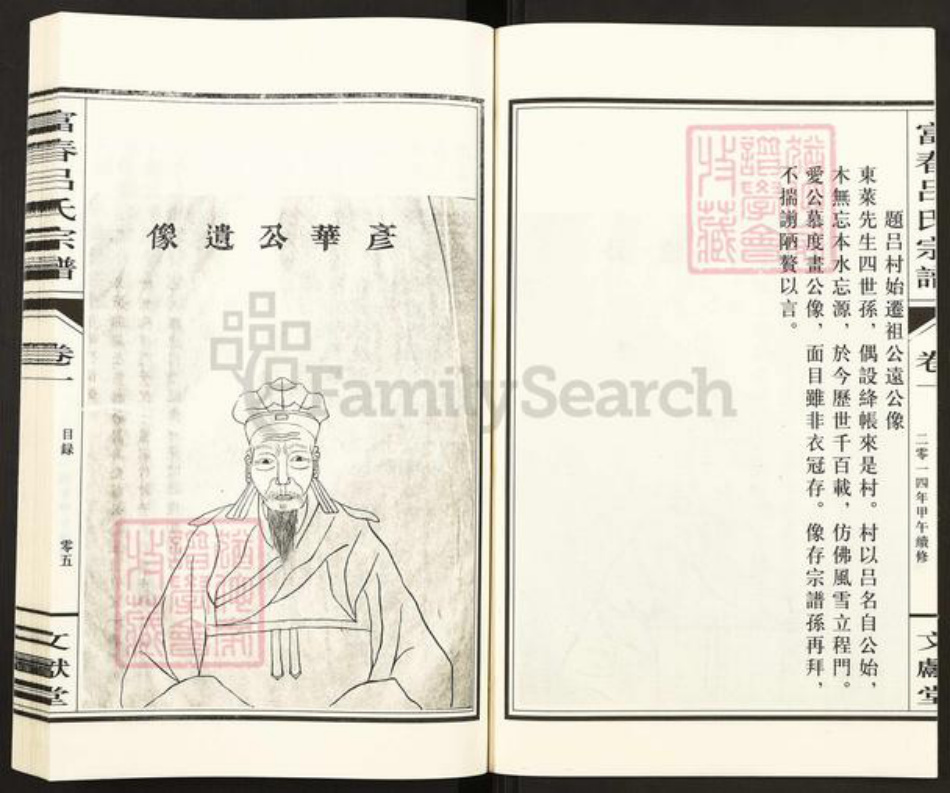 富春呂氏宗譜
卷一
二零一四年甲午續修
文獻堂
題呂村始遷祖公遠公像
東萊先生四世孫，偶設絳帳來是村。村以呂名自公始，
木無忘本水忘源，於今歷世千百載，仿佛風雪立程門。
愛公慕度畫公像，面目雖非衣冠存。像存宗譜孫再拜，
不揣譾陋贅以言。
彥華公遺像
富春呂氏宗譜
卷一
目錄
零五
文獻堂
FamilySearch